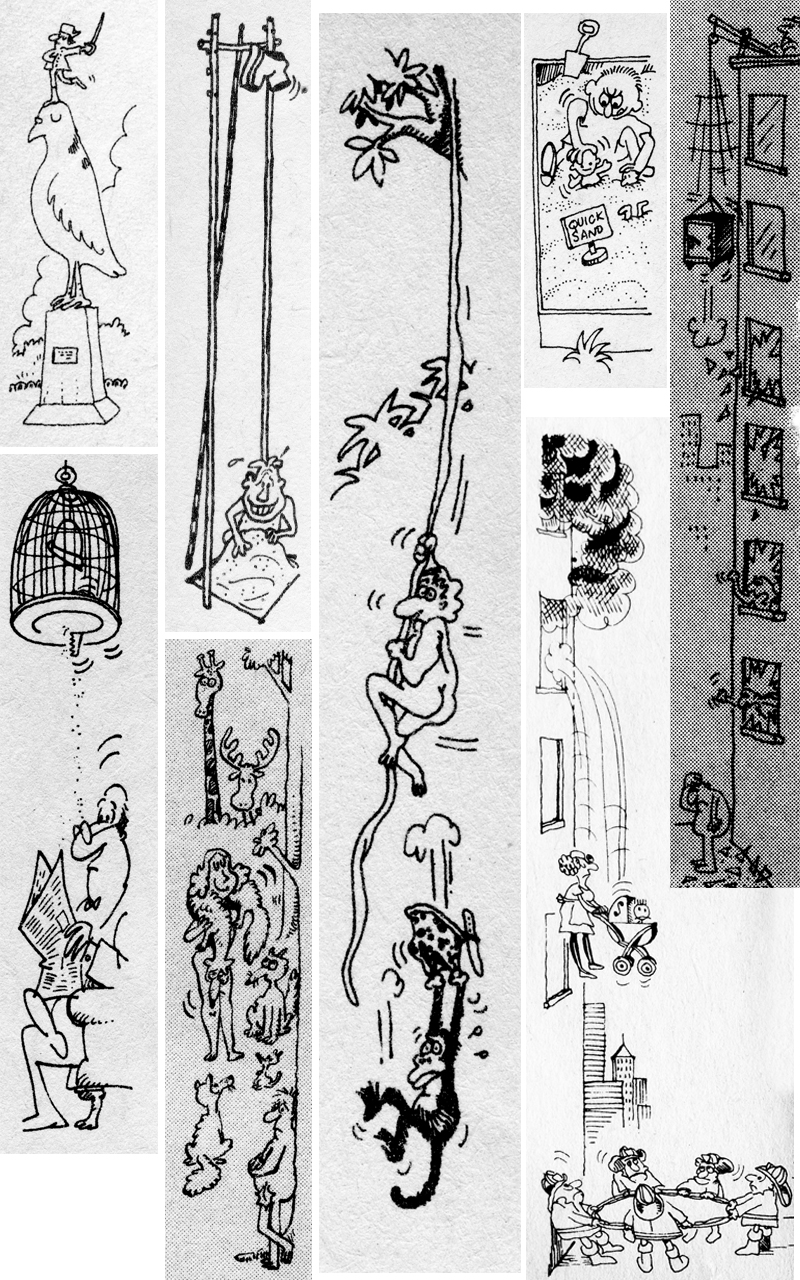 QUICK
SAND